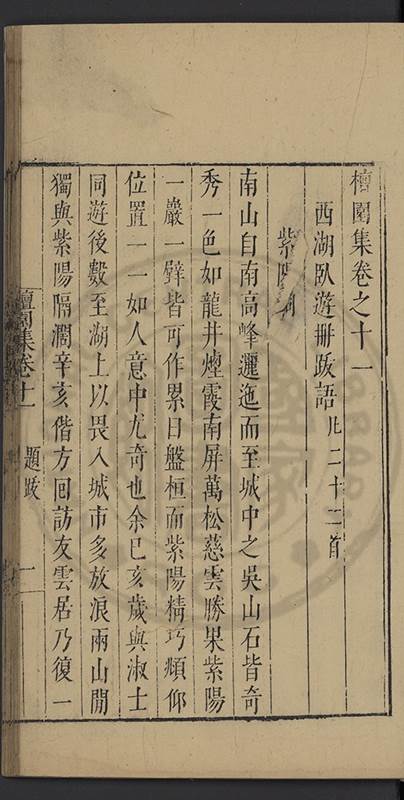 檀園集卷之十一
西湖臥遊冊跋語凡二十二首
紫陽洞
南山自南高峰邐迤而至城中之吳山石皆奇
秀一色如龍井煙霞南屏萬松慈雲勝果紫陽
一巖一壁皆可作累日盤桓而紫陽精巧頫仰
位置一一如人意中尤奇也余已亥歲與淑士
同遊後數至湖上以畏入城市多放浪兩山間
獨與紫陽隔濶辛亥偕方回訪友雲居乃復一
檀園集卷十一
題跋
一